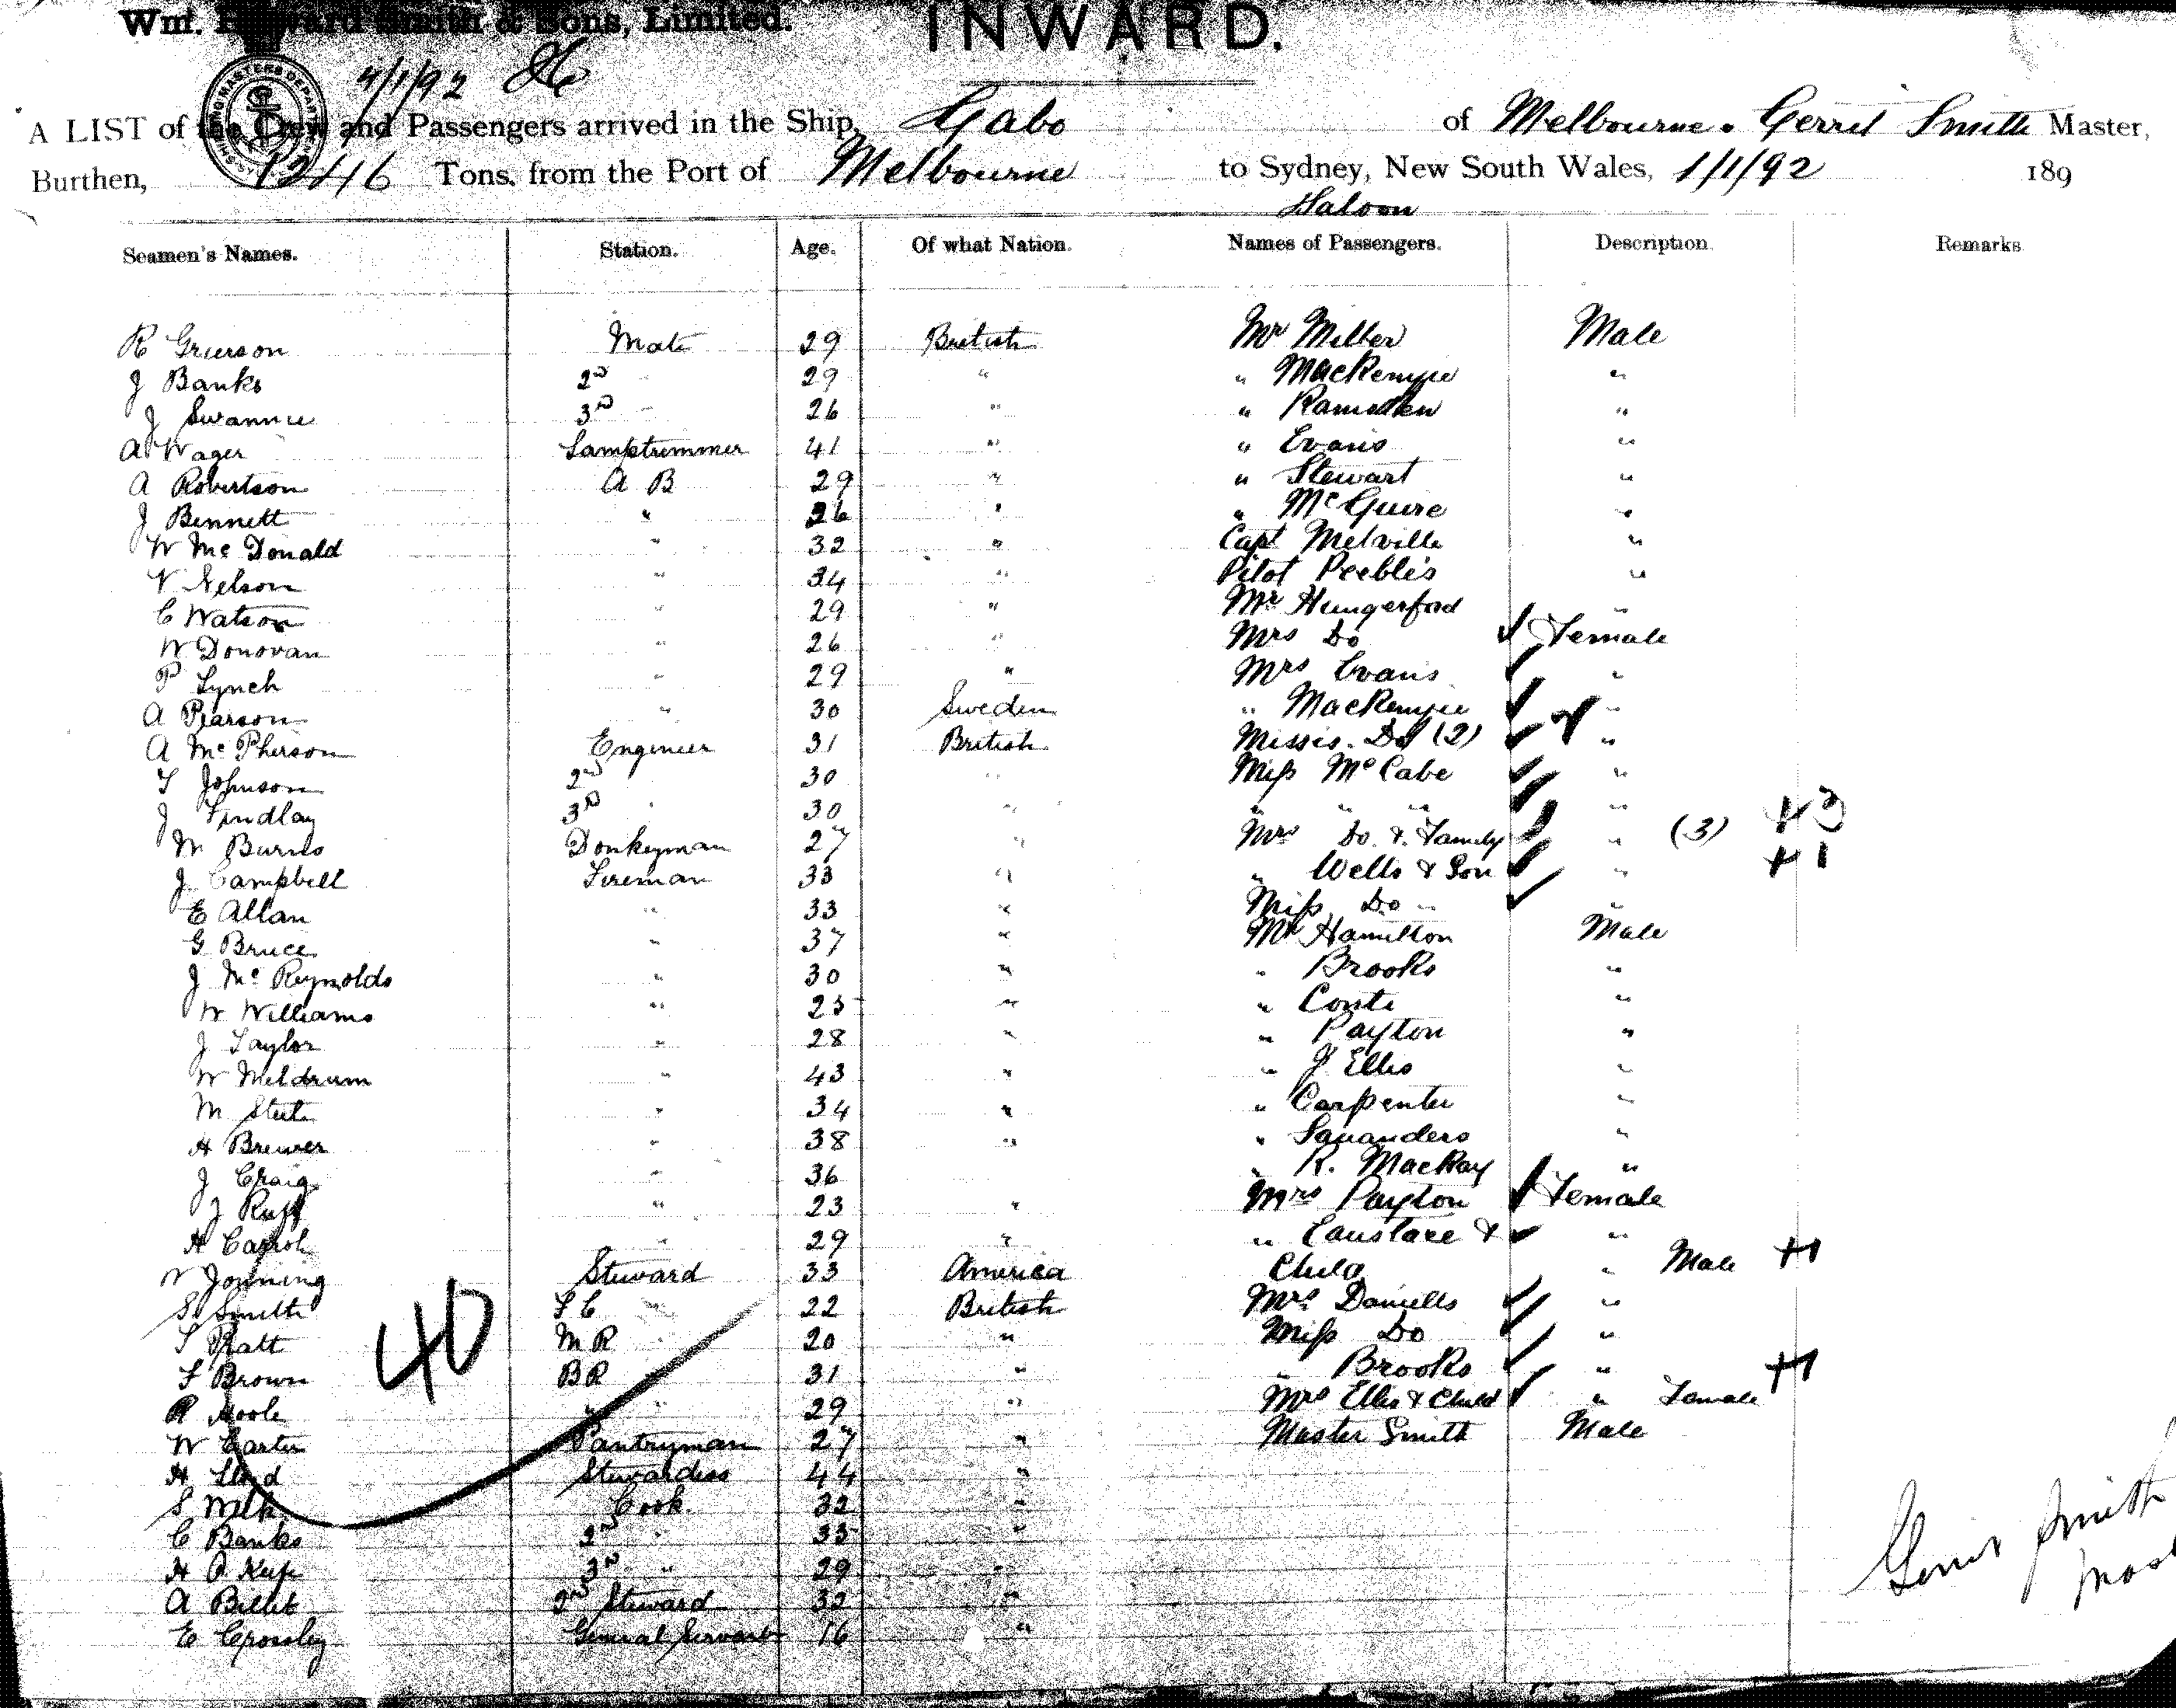 Wm. Howard Smith & Sons, Limited.
INWARD.
4/1/92
A LIST of the Crew and Passengers arrived in the Ship, Gabo of Melbourne. Gerrit Smith Master,
Burthen, 1246 Tons. from the Port of Melbourne to Sydney, New South Wales, 1/1/92 189
Saloon
Seamen's Names. Station. Age. Of what Nation. Names of Passengers. Description. Remarks
R Grierson Mate 29 British Mr Miller Male
J Banks 2nd " 29 " " MacKenzie "
J Swannie 3rd " 26 " " Ramsden "
A Wager Lamptrimmer 41 " " Evans "
A Robertson A B 29 " " Stewart "
J Bennett " 26 " " McGuire "
W McDonald " 32 " Capt Melville "
N Nelson " 34 " Pilot Peebles "
C Watson " 29 " Mr Hungerford "
W Donovan " 26 " Mrs Do Female
P Lynch " 29 " Mrs Evans "
A Pearson " 30 Sweden " MacKenzie "
A McPherson Engineer 31 British Misses Do (2) "
T Johnson 2nd " 30 " Miss McCabe "
J Findlay 3rd " 30 " " " " "
W Burns Donkeyman 27 " Mrs Do & Family " (3) +3
J Campbell Fireman 33 " " Wells & Son " +1
E Allan " 33 " Miss Do "
G Bruce " 37 " Mr Hamilton Male
J McReynolds " 30 " " Brooks "
W Williams " 23 " " Conti "
J Taylor " 28 " " Payton "
W Meldrum " 43 " " J Ellis "
M Steele " 34 " " Carpenter "
H Brewer " 38 " " Sauanders "
J Craig " 36 " R. MacKay "
J Ruff " 23 " Mrs Payton Female
H Carrol " 29 " " Eustace & "
W Jonning Steward 33 America Child " Male +1
S Smith F C " 22 British Mrs Daniells "
T Pratt M R " 20 " Miss Do "
F Brown B R " 31 " " Brooks "
R Poole " " 29 " Mrs Ellis & Child " Female +1
W Carter Pantryman 27 " Master Smith Male
H Lloyd Stewardess 44 "
S Wilk Cook. 32 "
C Banks 2nd " 33 "
H 3rd " 29 "
A Billet 2nd Steward 32 "
E Crossley General Servant 16 "
40
Gerrit Smith